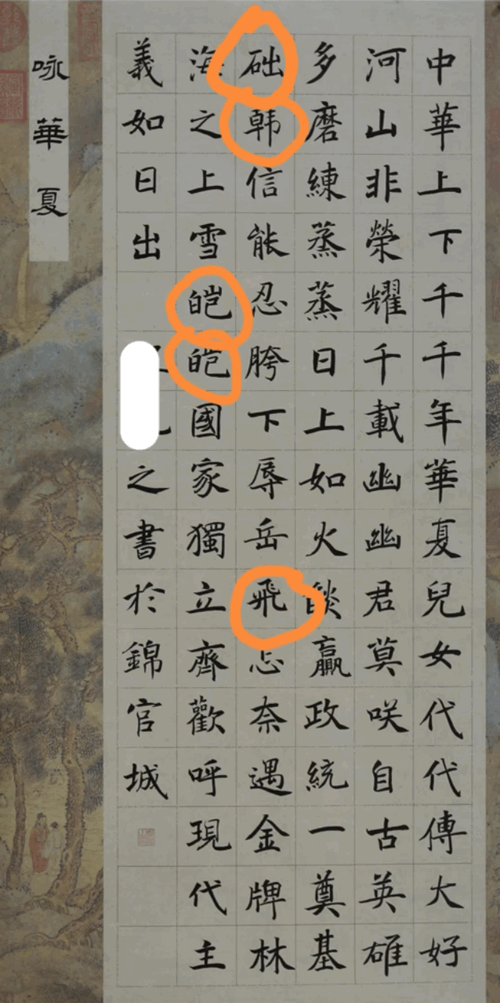 中華上下千千年華夏兒女代代傳大好
河山非榮耀千載幽幽君莫咲自古英雄
多磨練蒸蒸日上如火贏政統一奠基
础韩信能忍胯下辱岳飛奈遇金牌林
海之上雪皑皑國家獨立齊歡呼現代主
義如日出之書於錦官城
咏華夏